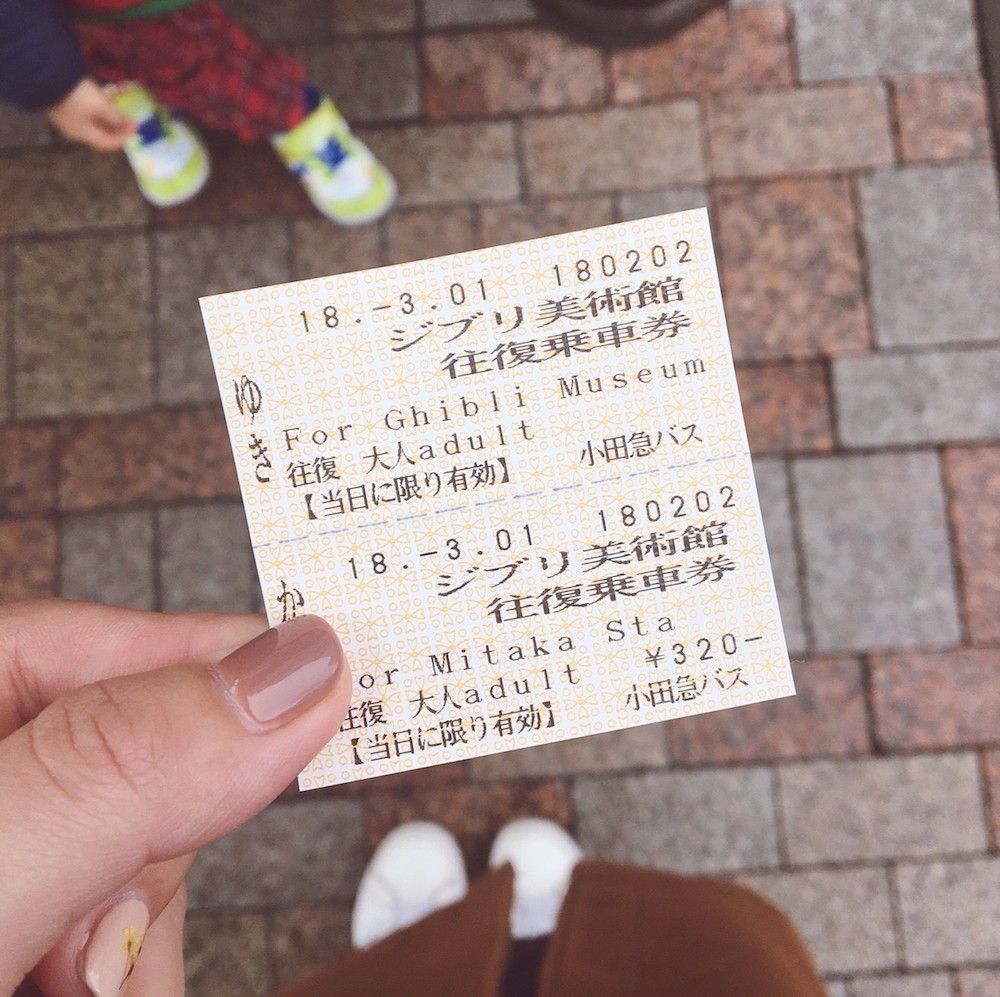 18.-3.01 180202
ジブリ美術館
往復乗車券
ゆき
For Ghibli Museum
往復 大人adult 小田急バス
【当日に限り有効】
18.-3.01 180202
ジブリ美術館
往復乗車券
か
or Mitaka Sta
往復 大人adult ¥320-
【当日に限り有効】 小田急バス